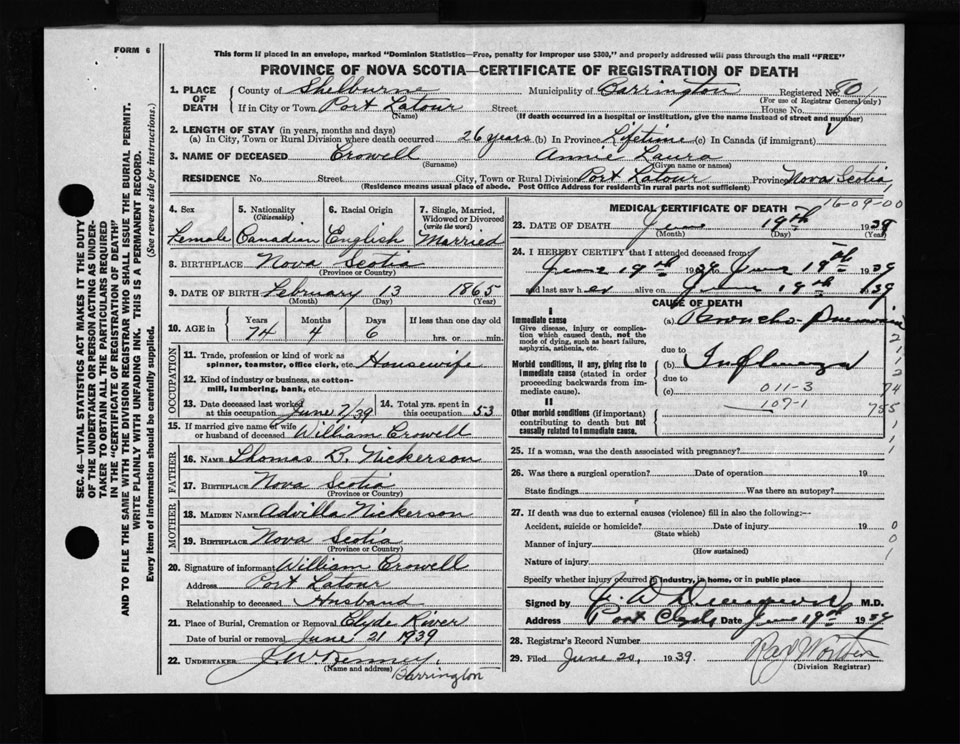 FORM 6
This form if placed in an envelope, marked "Dominion Statistics—Free, penalty for improper use $300," and properly addressed will pass through the mail "FREE"
PROVINCE OF NOVA SCOTIA—CERTIFICATE OF REGISTRATION OF DEATH
1. PLACE OF DEATH
County of Shelburne Municipality of Barrington Registered No. 60
(For use of Registrar General only)
If in City or Town Port Latour Street House No.
(Name) (If death occurred in a hospital or institution, give the name instead of street and number)
2. LENGTH OF STAY (in years, months and days)
(a) In City, Town or Rural Division where death occurred 26 years (b) In Province Lifetime (c) In Canada (if immigrant)
3. NAME OF DECEASED Crowell Annie Laura
(Surname) (Given name or names)
RESIDENCE No. Street City, Town or Rural Division Port Latour Province Nova Scotia
(Residence means usual place of abode. Post Office Address for residents in rural parts not sufficient)
16-09-00
4. Sex 5. Nationality (Citizenship) 6. Racial Origin 7. Single, Married, Widowed or Divorced (write the word)
Female Canadian English Married
8. BIRTHPLACE Nova Scotia
(Province or Country)
9. DATE OF BIRTH February 13 1865
(Month) (Day) (Year)
10. AGE in Years Months Days If less than one day old
74 4 6 hrs. or min.
OCCUPATION
11. Trade, profession or kind of work as spinner, teamster, office clerk, etc. Housewife
12. Kind of industry or business, as cotton-mill, lumbering, bank, etc.
13. Date deceased last worked at this occupation June 7/39 14. Total yrs. spent in this occupation 53
15. If married give name of wife or husband of deceased William Crowell
FATHER
16. NAME Thomas R. Nickerson
17. BIRTHPLACE Nova Scotia
(Province or Country)
MOTHER
18. MAIDEN NAME Advilla Nickerson
19. BIRTHPLACE Nova Scotia
(Province or Country)
20. Signature of informant William Crowell
Address Port Latour
Relationship to deceased Husband
21. Place of Burial, Cremation or Removal Clyde River
Date of burial or removal June 21 1939
22. UNDERTAKER J. W. Kenney,
(Name and address)
Barrington
MEDICAL CERTIFICATE OF DEATH
23. DATE OF DEATH June 19th 1939
(Month) (Day) (Year)
24. I HEREBY CERTIFY that I attended deceased from
June 19th 1939 to June 19th 1939
and last saw her alive on June 19th 1939
CAUSE OF DEATH
I
Immediate cause (a) Broncho-Pneumonia
Give disease, injury or complication which caused death, not the mode of dying, such as heart failure, asphyxia, asthenia, etc.
due to
Morbid conditions, if any, giving rise to immediate cause (stated in order proceeding backwards from immediate cause)
(b) Influenza
due to
(c) 011-3
107-1
II
Other morbid conditions (if important) contributing to death but not causally related to immediate cause.
2
1
1
2
74
755
1
1
1
25. If a woman, was the death associated with pregnancy?
26. Was there a surgical operation? Date of operation 19
State findings Was there an autopsy?
27. If death was due to external causes (violence) fill in also the following:—
Accident, suicide or homicide? Date of injury 19 0
(State which)
Manner of injury 0
(How sustained)
Nature of injury 1
Specify whether injury occurred in industry, in home, or in public place
Signed by M.D.
Address Port Clyde Date June 19th 1939
28. Registrar's Record Number
29. Filed June 20, 1939
(Division Registrar)
SEC. 46—VITAL STATISTICS ACT MAKES IT THE DUTY
OF THE UNDERTAKER OR PERSON ACTING AS UNDER-
TAKER TO OBTAIN ALL THE PARTICULARS REQUIRED
IN THE "CERTIFICATE OF REGISTRATION OF DEATH"
AND TO FILE THE SAME WITH THE DIVISION REGISTRAR WHO SHALL ISSUE THE BURIAL PERMIT.
WRITE PLAINLY WITH UNFADING INK. THIS IS A PERMANENT RECORD.
Every item of information should be carefully supplied. (See reverse side for instructions.)